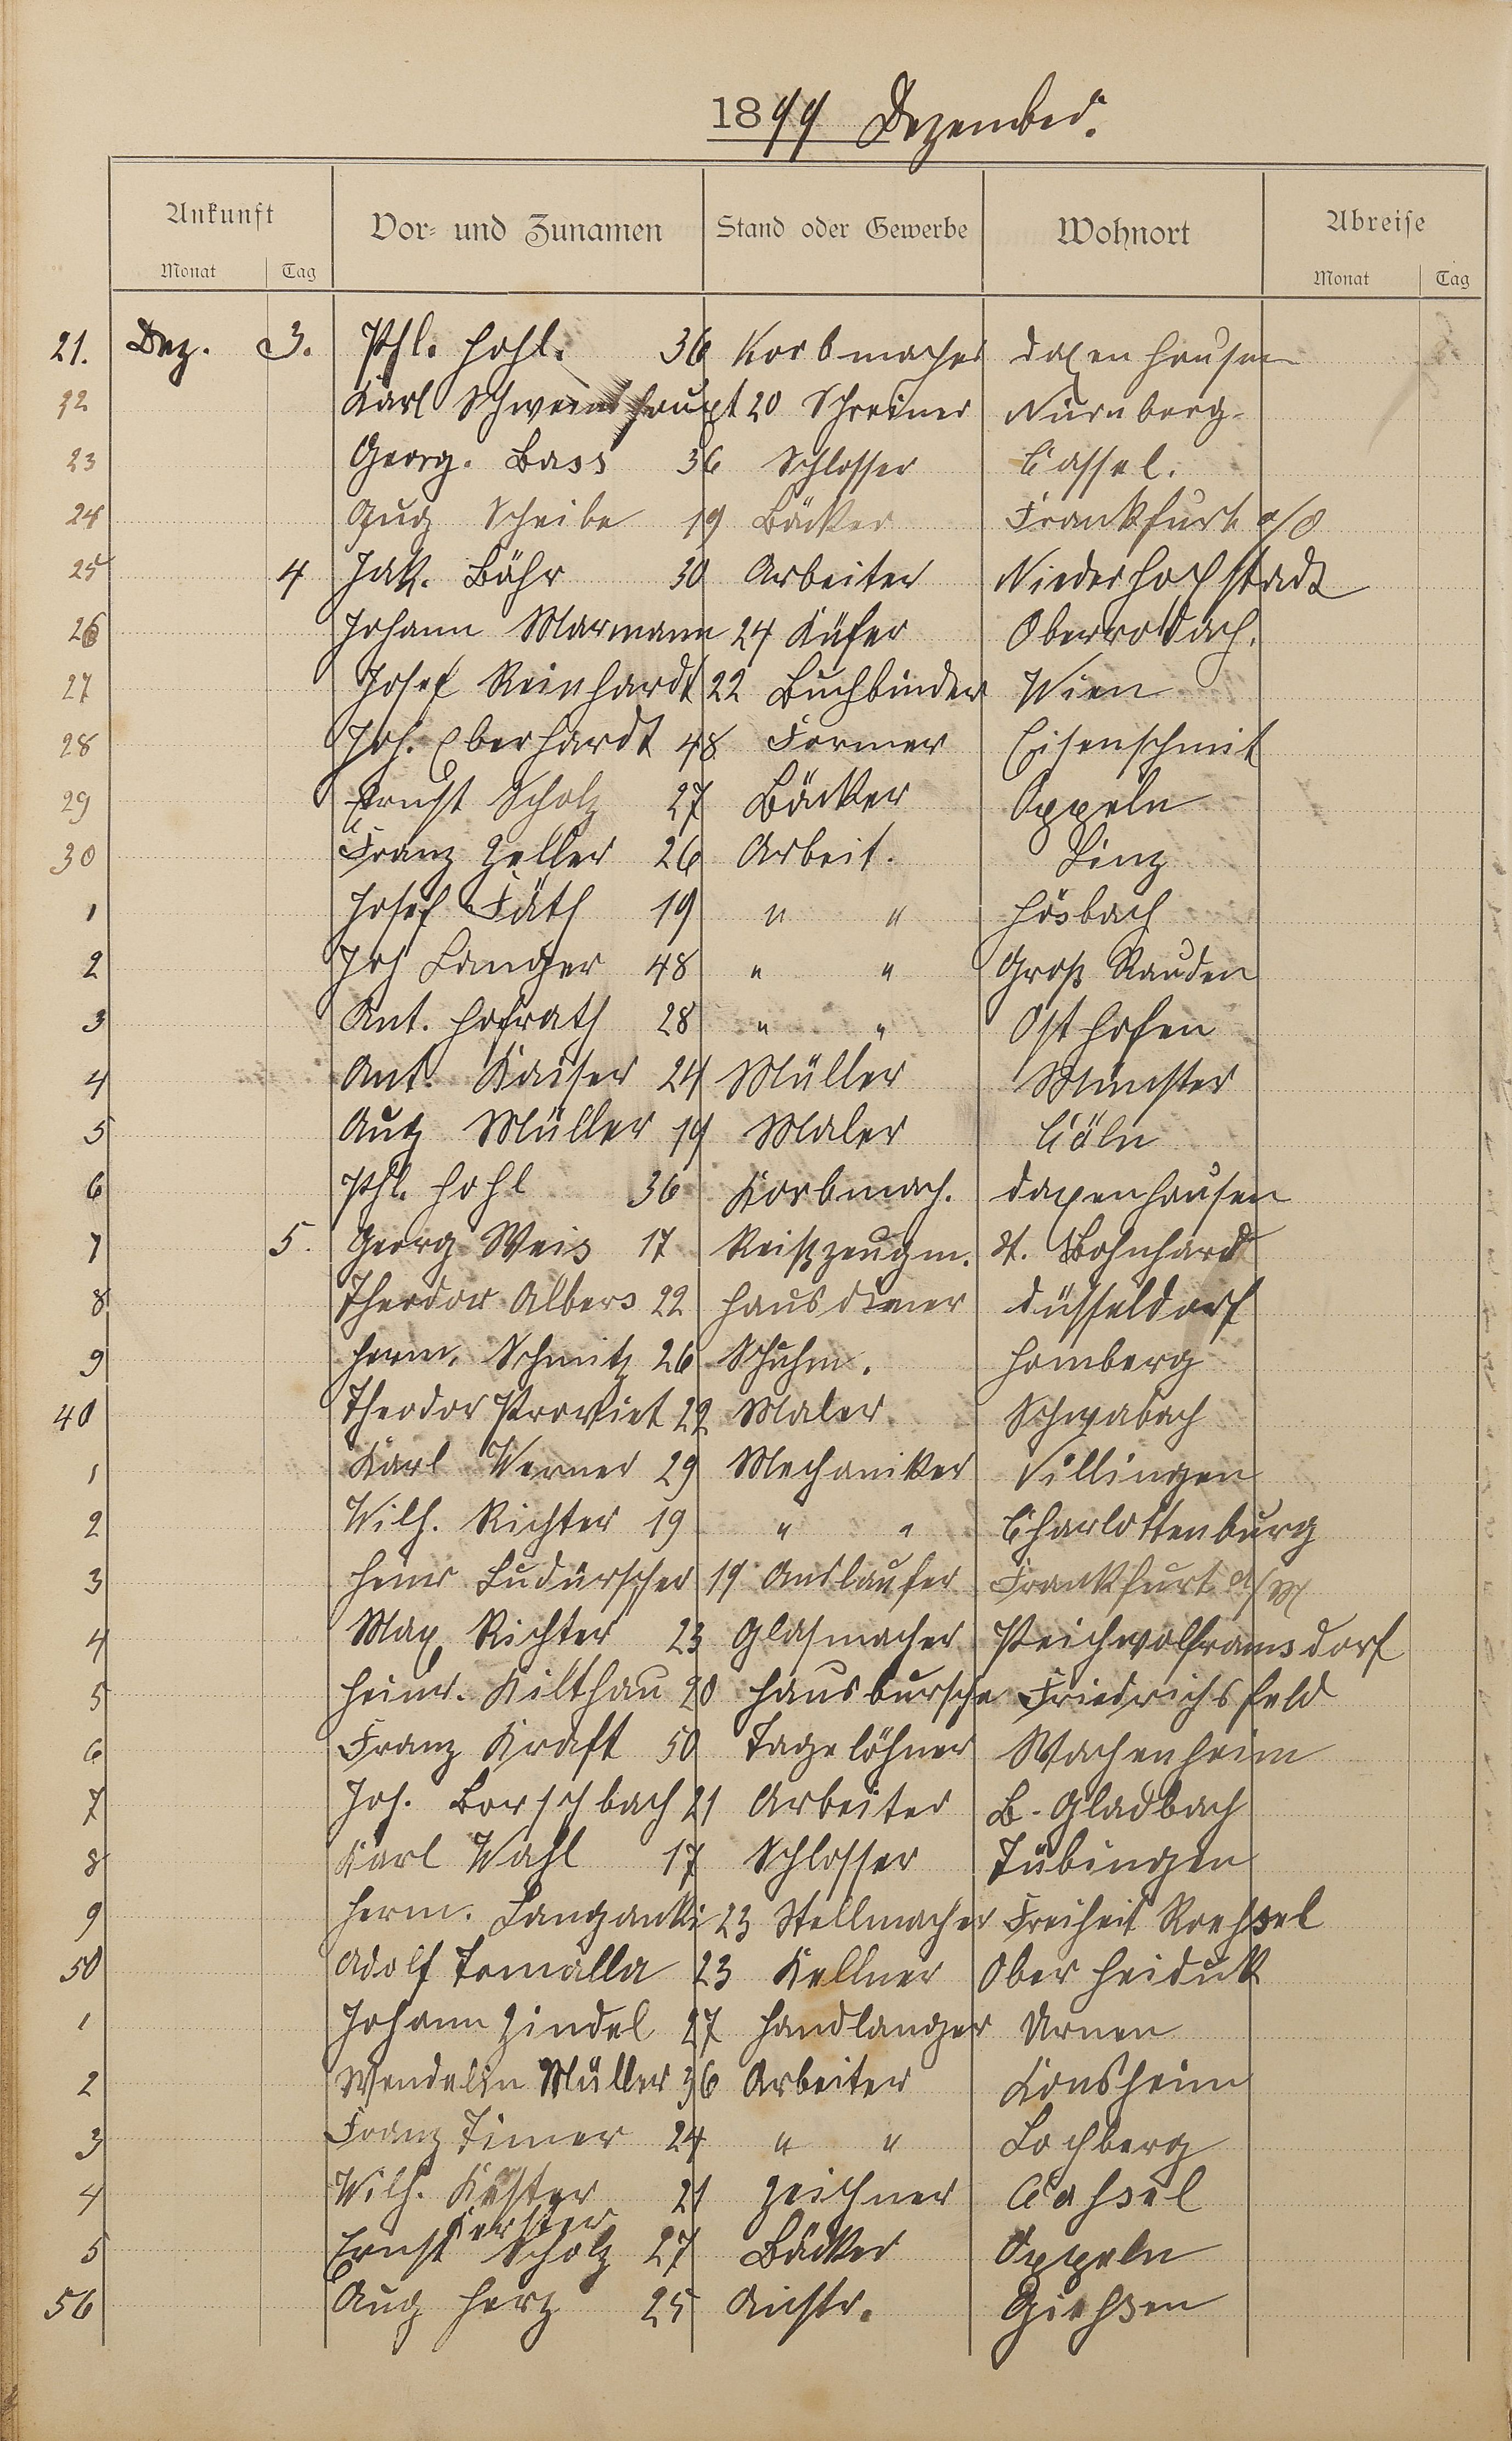 1899 Dezember.
Ankunft Vor- und Zunamen Stand oder Gewerbe Wohnort Abreise
Monat Tag Monat Tag
21. Dez. 3. Phl. Hohl. 36 Korbmacher Daxenhausen
22 Karl Schweinshaupt 20 Schreiner Nürnberg
23 Georg. Bass 36 Schlosser Cassel.
24 Aug Scheibe 19 Bäcker Frankfurt a/O
25 4 Jak. Bähr 30 Arbeiter Niederhochstadt
26 Johann Marmann 24 Küfer Oberrodach.
27 Josef Reinhardt 22 Buchbinder Wien
28 Joh. Eberhardt 48 Former Eisenschmit
29 Ernst Scholz 27 Bäcker Oppeln
30 Franz Zeller 26 Arbeit. Linz
1 Josef Fäth 19 " " Hösbach
2 Joh Langer 48 " " Groß Rauden
3 Ant. Hofrath 28 " " Osthofen
4 Ant. Kaiser 24 Müller Münster
5 Aug Müller 19 Maler Cöln
6 Phl. Hohl 36 Korbmach. Daxenhausen
7 5. Georg Weis 17 Reißzeugm. St.
8 Theodor Albers 22 Hausdiener Düsseldorf
9 Herm. Schmitz 26 Schuhm. Homberg
40 Theodor Proviet 22 Maler Schwabach
1 Karl Werner 29 Mechaniker Villingen
2 Wilh. Richter 19 " " Charlottenburg
3 Heinr 19 Auslaufer Frankfurt a/M
4 Max Richter 23 Glasmacher
5 Heinr. Kilthau 20 Hausbursche Friedrichsfeld
6 Franz Kraft 50 Tagelöhner Wachenheim
7 Jos. Borschbach 21 Arbeiter B. Gladbach
8 Karl Wahl 17 Schlosser Tübingen
9 Herm. Langanki 23 Stellmacher Freiheit Roehsel
50 Adolf Tomalla 23 Kellner Ober Heiduk
1 Johann Zindel 27 Handlanger Urnen
2 Wendelin Müller 36 Arbeiter
3 Franz Timer 24 " " Lochberg
4 Wilh. Köster 21 Zeichner Cahsel
Kerster
5 Ernst Scholz 27 Bäcker Oppeln
56 Aug Herz 25 Giehsen